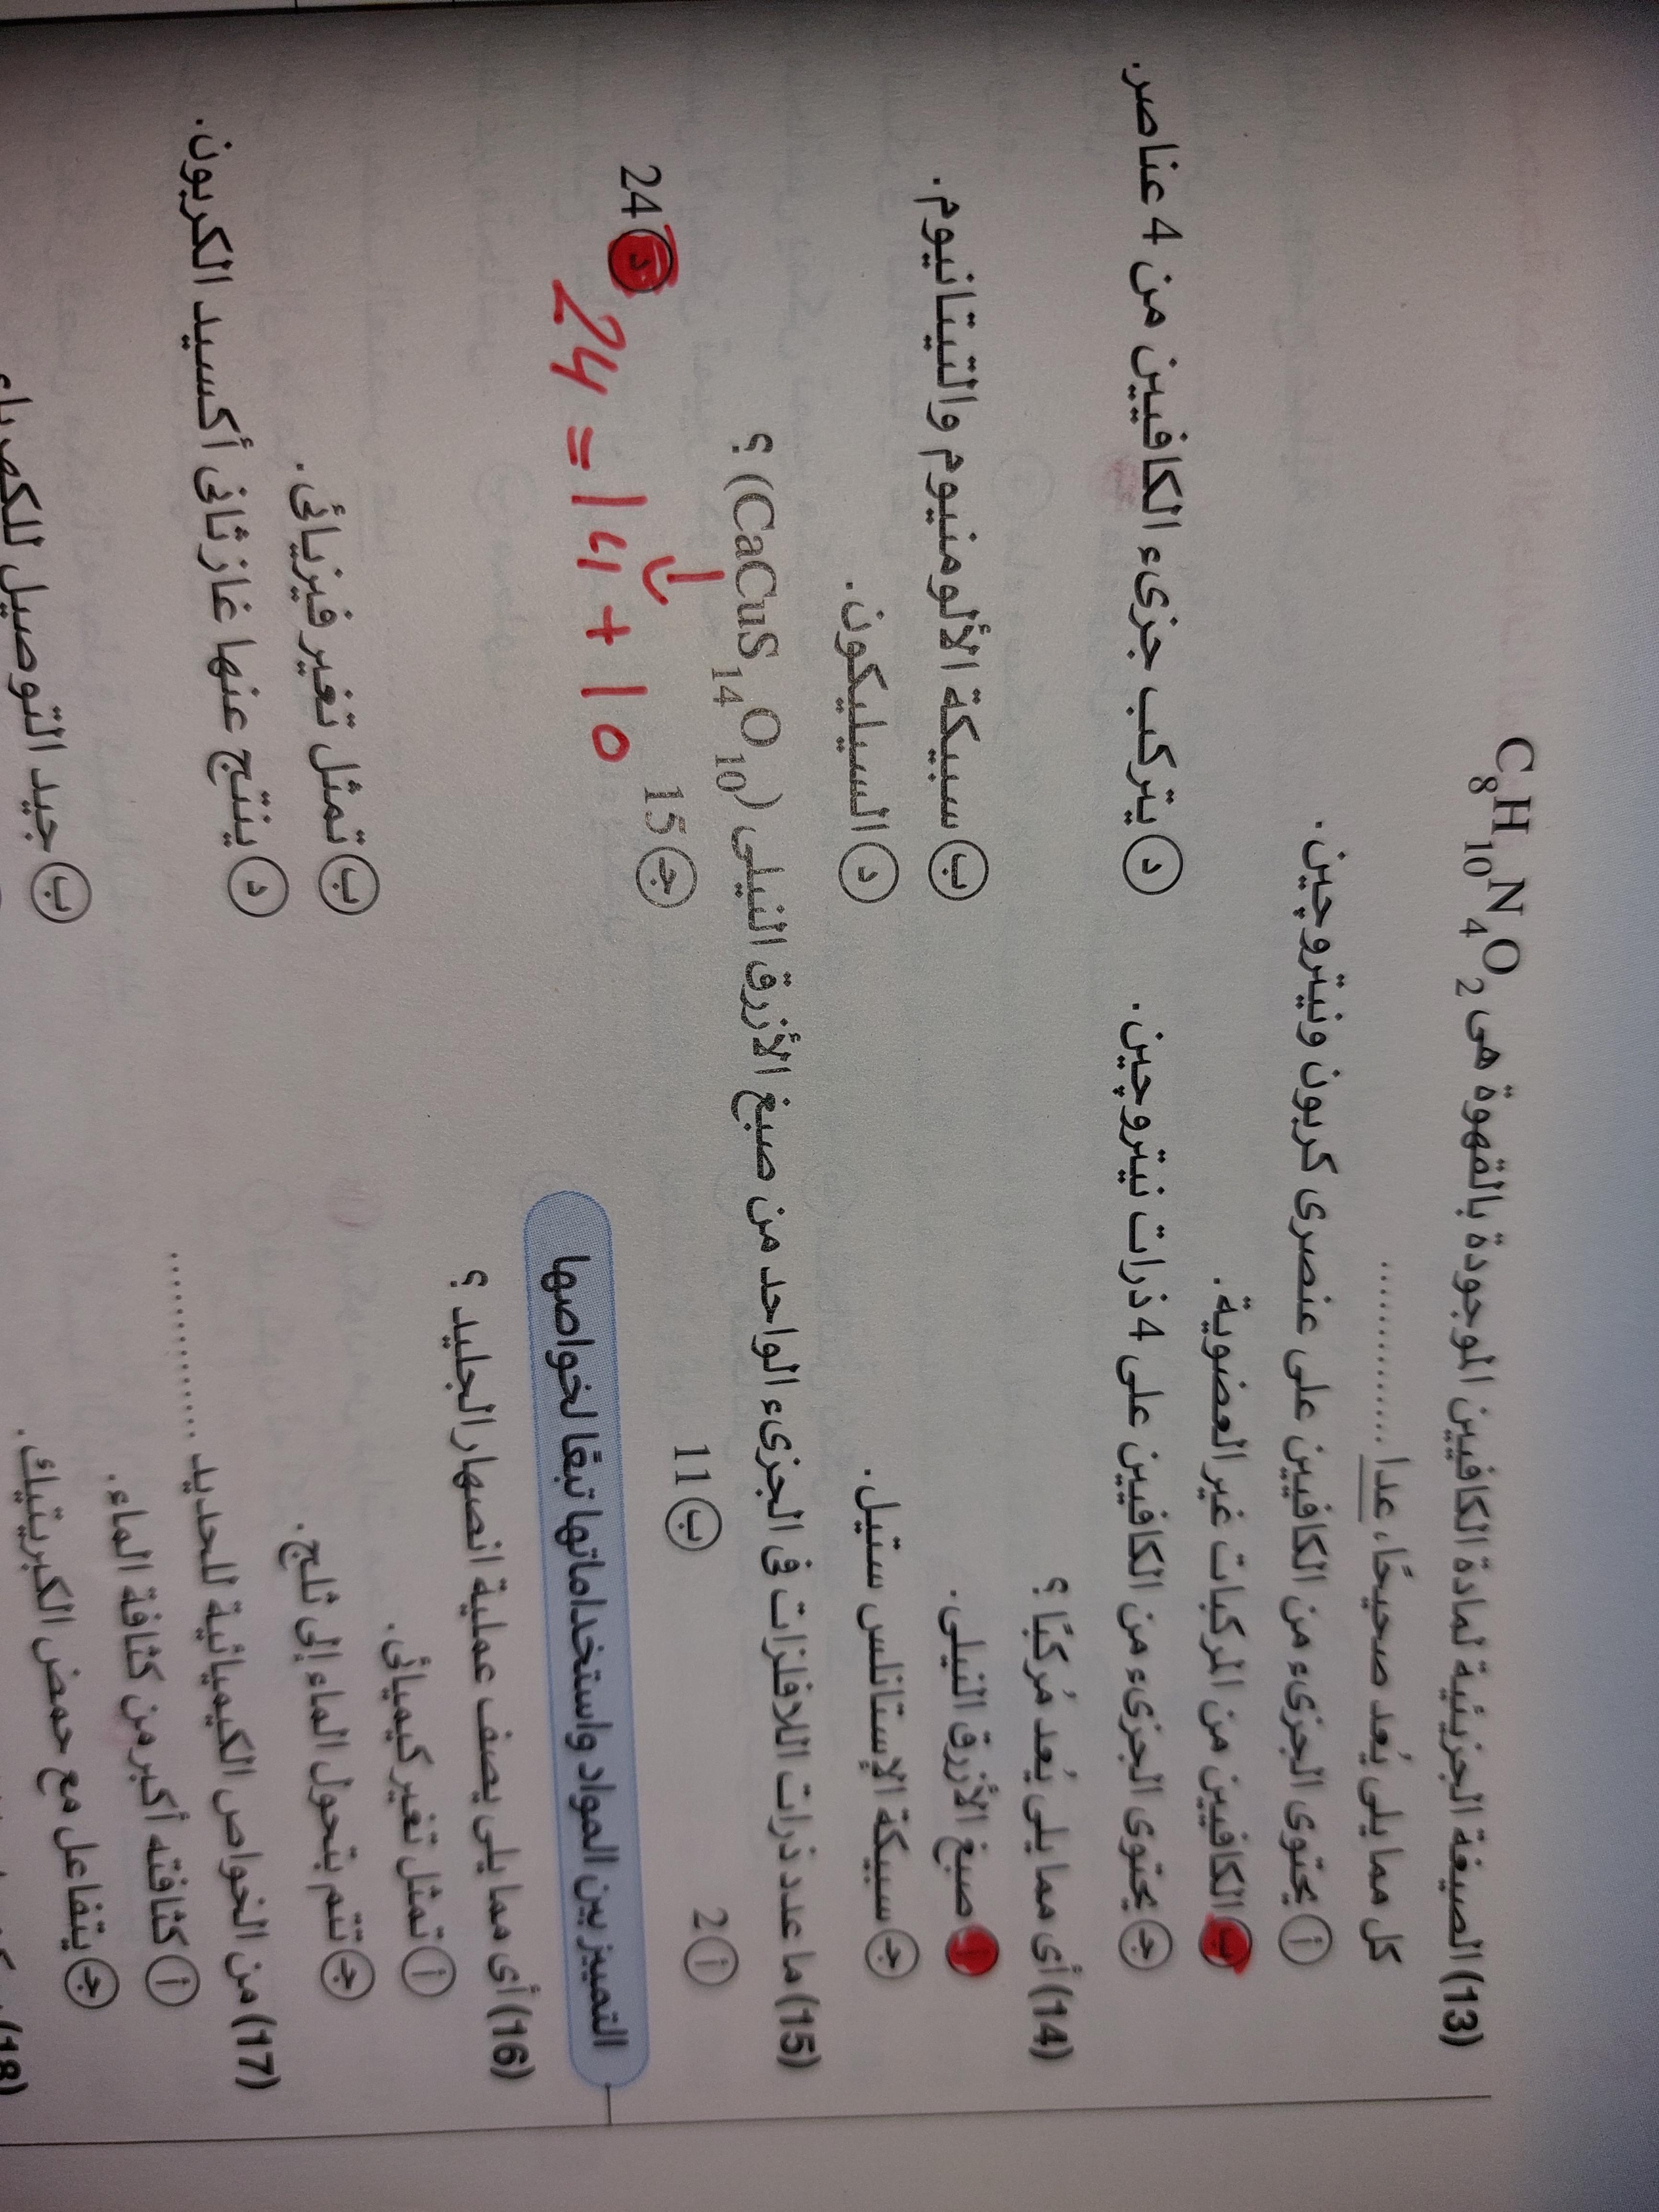 (13) الصيغة الجزيئية لمادة الكافيين الموجودة بالقهوة هى C8H10N4O2
كل مما يلى يُعد صحيحًا، عدا ............
أ يحتوى الجزىء من الكافيين على عنصرى كربون ونيتروچين.
ب الكافيين من المركبات غير العضوية.
ج يحتوى الجزىء من الكافيين على 4 ذرات نيتروچين. د يتركب جزىء الكافيين من 4 عناصر.
(14) أى مما يلى يُعد مُركبًا ؟
أ صبغ الأزرق النيلى. ب سبيكة الألومنيوم والتيتانيوم.
ج سبيكة الإستانلس ستيل. د السيليكون.
(15) ما عدد ذرات اللافلزات فى الجزىء الواحد من صبغ الأزرق النيلى (CaCuS14O10) ؟
أ 2 ب 11 ج 15 د 24
24 = 14 + 10
التمييز بين المواد واستخداماتها تبعًا لخواصها
(16) أى مما يلى يصف عملية انصهار الجليد ؟
أ تمثل تغير كيميائى. ب تمثل تغير فيزيائى.
ج تتم بتحول الماء إلى ثلج. د ينتج عنها غاز ثانى أكسيد الكربون.
(17) من الخواص الكيميائية للحديد ............
أ كثافته أكبر من كثافة الماء. ب جيد التوصيل للكهرباء
ج يتفاعل مع حمض الكبريتيك.
(18)